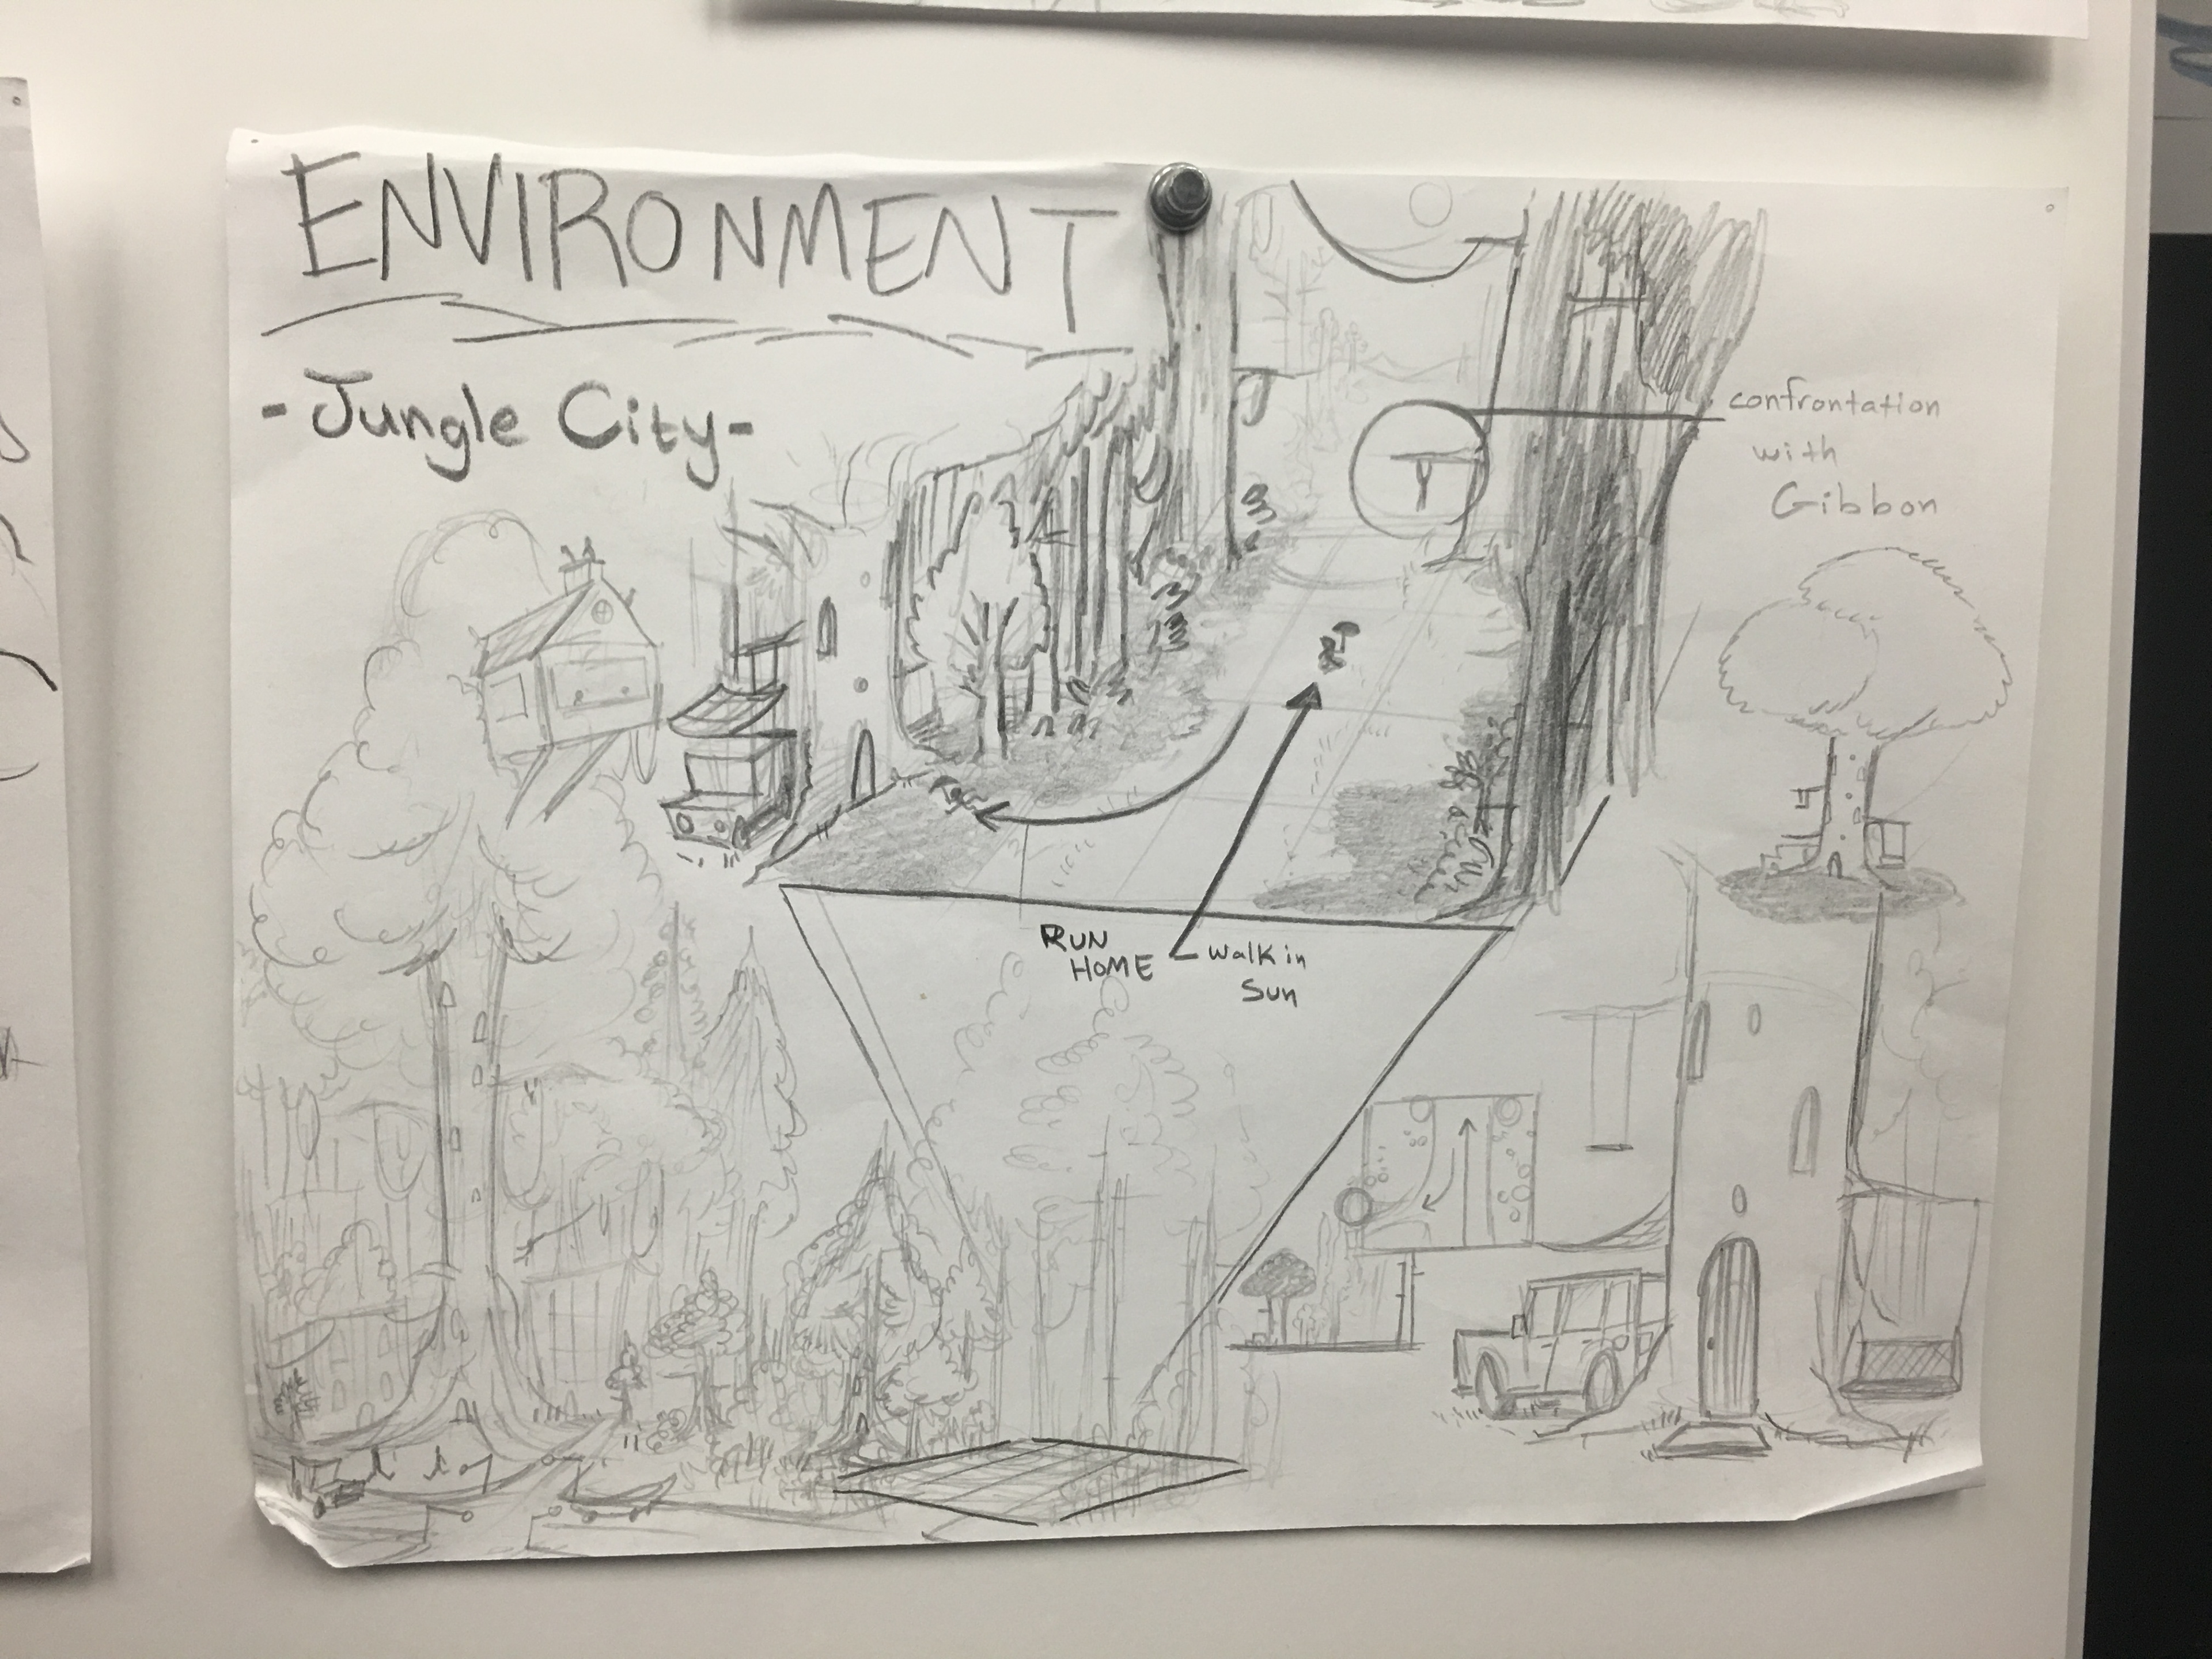 ENVIRONMENT
-Jungle City-
confrontation
with
Gibbon
RUN
HOME
walk in
Sun